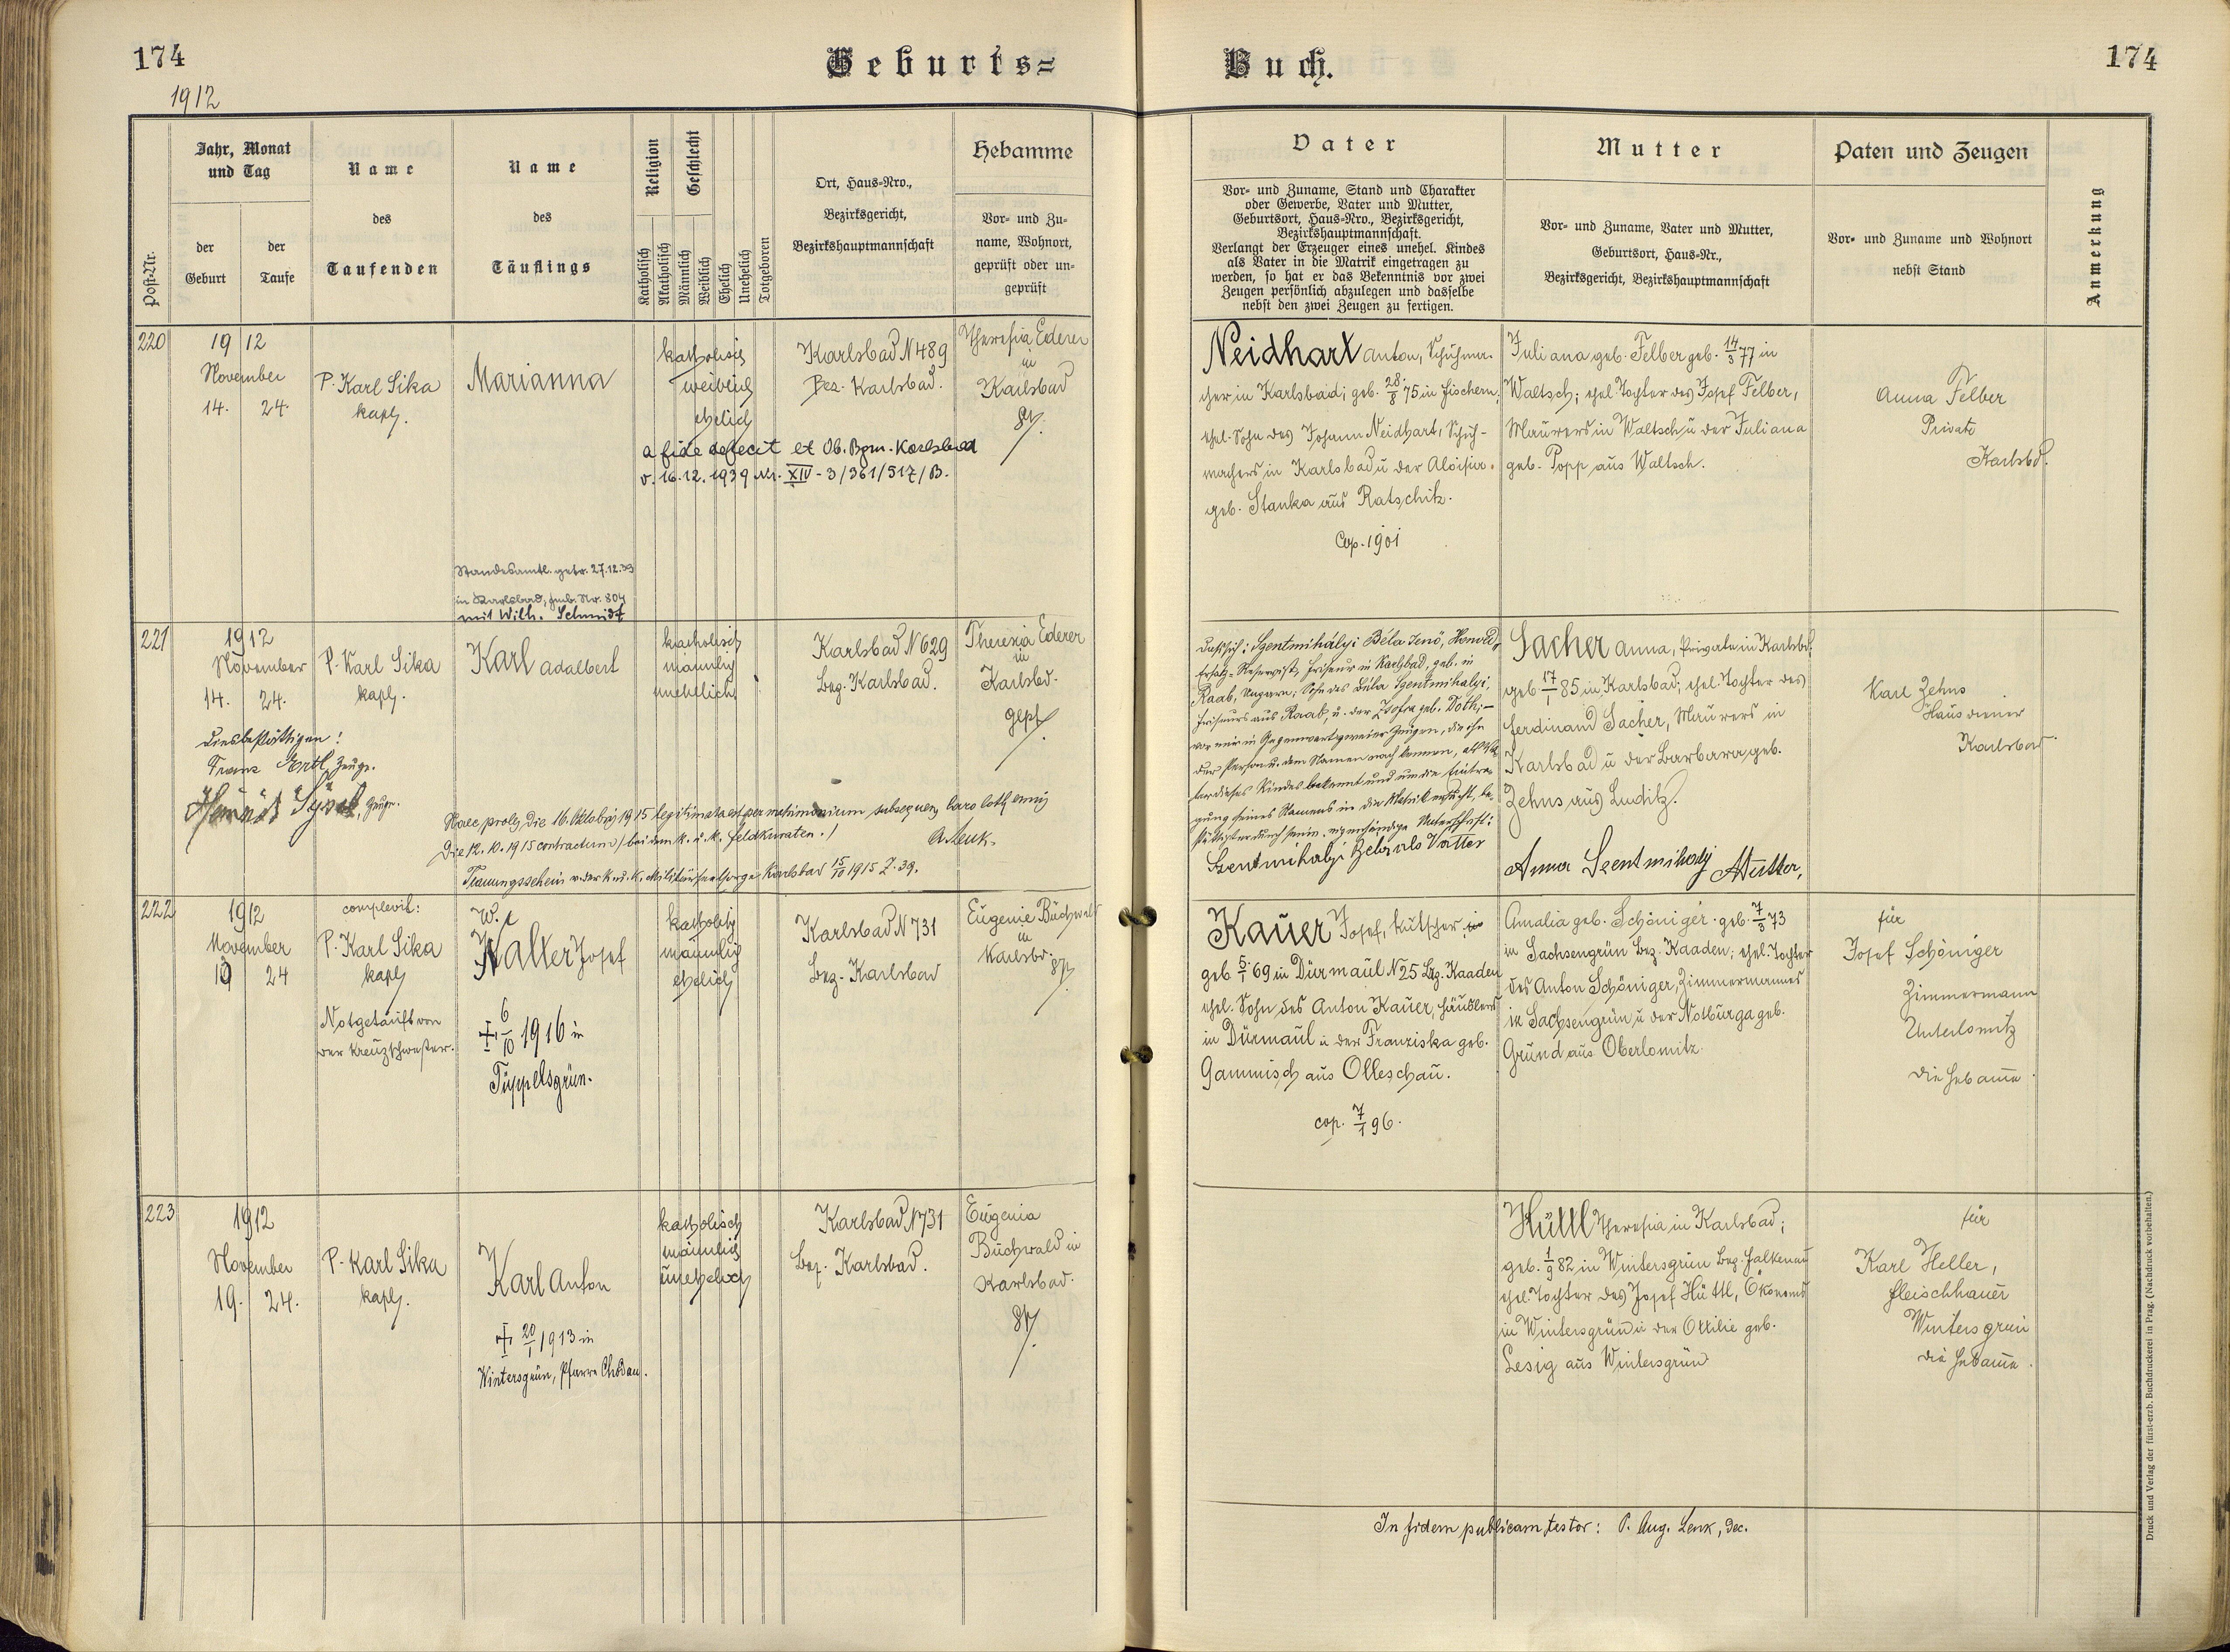 174
Geburts=
Buch.
174
1912
Post-Nr.
Jahr, Monat
und Tag
der
Geburt
der
Taufe
Name
des
Taufenden
Name
des
Täuflings
Religion
Katholisch
Akatholisch
Geschlecht
Männlich
Weiblich
Ehelich
Unehelich
Totgeboren
Ort, Haus-Nro.,
Bezirksgericht,
Bezirkshauptmannschaft
Hebamme
Vor- und Zu-
name, Wohnort,
geprüft oder un-
geprüft
Vater
Vor- und Zuname, Stand und Charakter
oder Gewerbe, Vater und Mutter,
Geburtsort, Haus-Nro., Bezirksgericht,
Bezirkshauptmannschaft.
Verlangt der Erzeuger eines unehel. Kindes
als Vater in die Matrik eingetragen zu
werden, so hat er das Bekenntnis vor zwei
Zeugen persönlich abzulegen und dasselbe
nebst den zwei Zeugen zu fertigen.
Mutter
Vor- und Zuname, Vater und Mutter,
Geburtsort, Haus-Nr.,
Bezirksgericht, Bezirkshauptmannschaft
Paten und Zeugen
Vor- und Zuname und Wohnort
nebst Stand
Anmerkung
220
1912
November
14. 24.
P. Karl Sika
kapl.
Marianna
katholisch
weiblich
ehelich
a fide defecit et Ob. Bzm. Karlsbad
v. 16.12.1939 Nr. XIV - 3/361/517/B.
Standesamtl. getr. 27.12.39
in Karlsbad, Fmb. Nr. 804
mit Wilh. Schmidt
Karlsbad N 489
Bez. Karlsbad.
Theresia Ederer
in
Karlsbad
gp.
Neidhart Anton, Schuhma-
cher in Karlsbad; geb. 28/8 75 in Fischern,
ehel. Sohn des Johann Neidhart, Schuh-
machers in Karlsbad u der Aloisia
geb. Stanka aus Ratschitz.
Cop. 1901
Juliana geb. Felber geb. 14/3 77 in
Waltsch; ehel. Tochter des Josef Felber,
Maurers in Waltsch u der Juliana
geb. Popp aus Waltsch.
Anna Felber
Private
Karlsbd.
221
1912
November
14. 24.
P. Karl Sika
kapl.
Karl Adalbert
katholisch
männlich
unehelich
Karlsbad N 629
Bez. Karlsbad.
Theresia Ederer
in
Karlsbd.
gepf.
Dies bestättigen!
Franz Ertl, Zeuge.
Zeuge.
Haec proles die 16. Oktobris 1915 legitimata est per matrimonium subsequens
Die 12.10.1915 contractum / bei dem k. u. k. Feldkuraten. /
A. Lenk.
Trauungsschein v. der k. u. k. Militärseelsorge Karlsbad 15/10 1915 Z. 39.
Szentmihályi Béla Jenö, Honvéd,
Ersatz-Reservist, Friseur in Karlsbad, geb. in
Raab, Ungarn; Sohn des Béla Szentmihalyi,
Friseurs aus Raab, u. der Zsofia geb. Doth; —
vor mir in Gegenwart zweier Zeugen, die ihn
der Person u. dem Namen nach kennen, als Va-
ter dieses Kindes bekennt und um die Eintra-
gung seines Namens in die Matrik ersucht, be-
stättigt er durch seine eigenhändige Unterschrift:
Szentmihalyi Bela als Vatter
Sacher Anna, Private in Karlsbd.
geb. 17/1 85 in Karlsbad, ehel. Tochter des
Ferdinand Sacher, Maurers in
Karlsbad u der Barbara geb.
Zehns aus Luditz.
Anna Szentmihalyi Mutter,
Karl Zehns
Hausdiener
Karlsbad
222
1912
November
19 24
complevit:
P. Karl Sika
kapl
Notgetauft von
der Kreuzschwester.
W.
Walter Josef
+ 6/10 1916 in
Tüppelsgrün.
katholisch
männlich
ehelich
Karlsbad N 731
Bez. Karlsbad
Eugenie Buchwald
in
Karlsbd.
gp.
Kauer Josef, Kutscher in
geb 5/1 69 in Dürmaul N 25 Bez. Kaaden
ehel. Sohn des Anton Kauer, Häuslers
in Dürmaul u der Franziska geb.
Gammisch aus Olleschau.
cop. 7/1 96.
Amalia geb. Schöniger geb. 7/3 73
in Sachsengrün Bez. Kaaden; ehel. Tochter
des Anton Schöniger, Zimmermannes
in Sachsengrün u der Notburga geb.
Grund aus Oberlomitz.
für
Josef Schöniger
Zimmermann
Unterlomitz
die Hebamme.
223
1912
November
19. 24.
P. Karl Sika
kapl.
Karl Anton
+ 20/1 1913 in
Wintersgrün, Pfarre Chodau.
katholisch
männlich
unehelich
Karlsbad N 731
Bez. Karlsbad.
Eugenia
Buchwald in
Karlsbad.
gp.
Hüttl Theresia in Karlsbad;
geb. 1/9 82 in Wintersgrün Bez. Falkenau
ehel. Tochter des Josef Hüttl, Ökonoms
in Wintersgrün u der Ottilie geb.
Lesig aus Wintersgrün
für
Karl Heller,
Fleischhauer
Wintersgrün
die Hebamme.
In fidem publicam testor: P. Aug. Lenk, Dec.
Druck und Verlag der fürst-erzb. Buchdruckerei in Prag. (Nachdruck vorbehalten.)